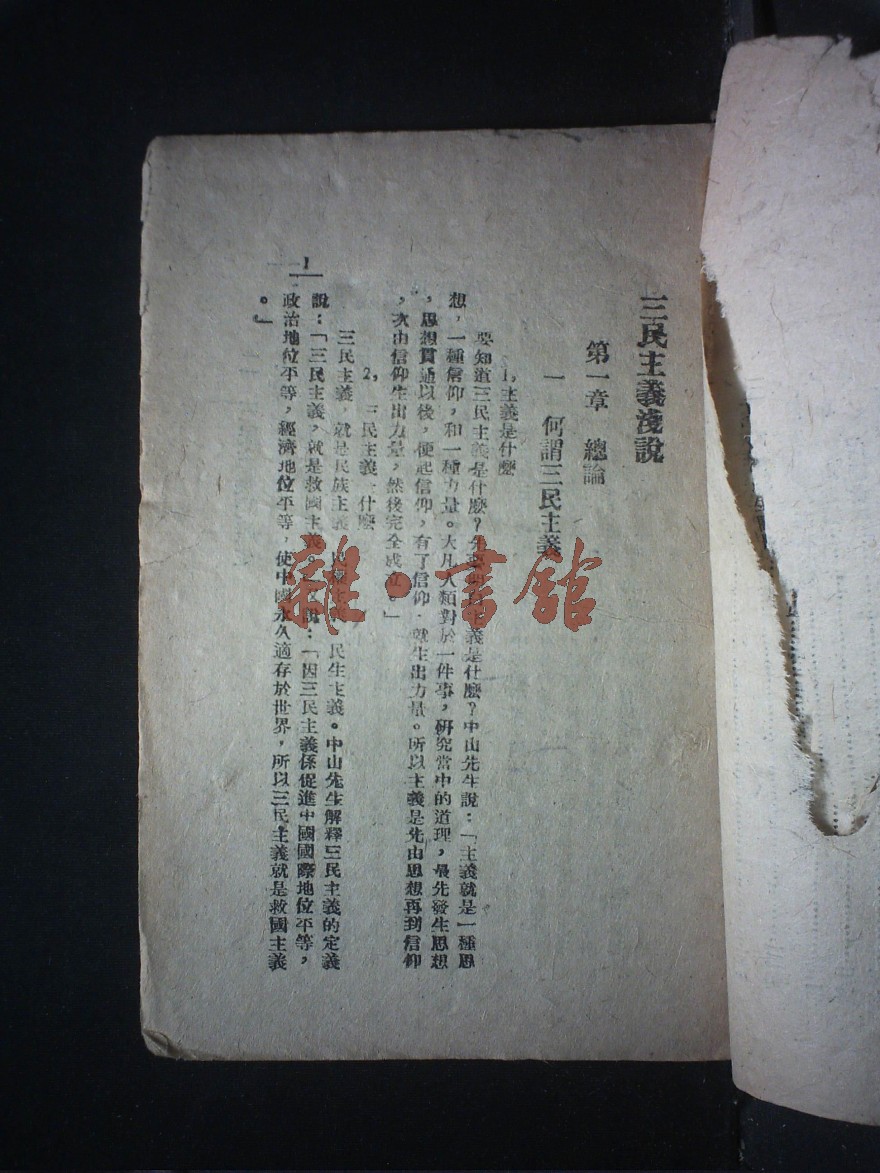 三民主義淺說
第一章 總論
一 何謂三民主義
1,主義是什麼
要知道三民主義是什麼?先要明白主義是什麼?中山先生說:「主義就是一種思
想,一種信仰,和一種力量。大凡人類對於一件事,研究當中的道理,最先發生思想
,思想貫通以後,便起信仰,有了信仰,就生出力量。所以主義是先由思想再到信仰
,次由信仰生出力量,然後完全成立。」
2, 三民主義 什麼
三民主義,就是民族主義 民權主義 民生主義。中山先生解釋三民主義的定義
說:「三民主義,就是救國主義。 說:「因三民主義係促進中國國際地位平等,
政治地位平等,經濟地位平等,使中國永久適存於世界,所以三民主義就是救國主義
。」
1
雜·書館